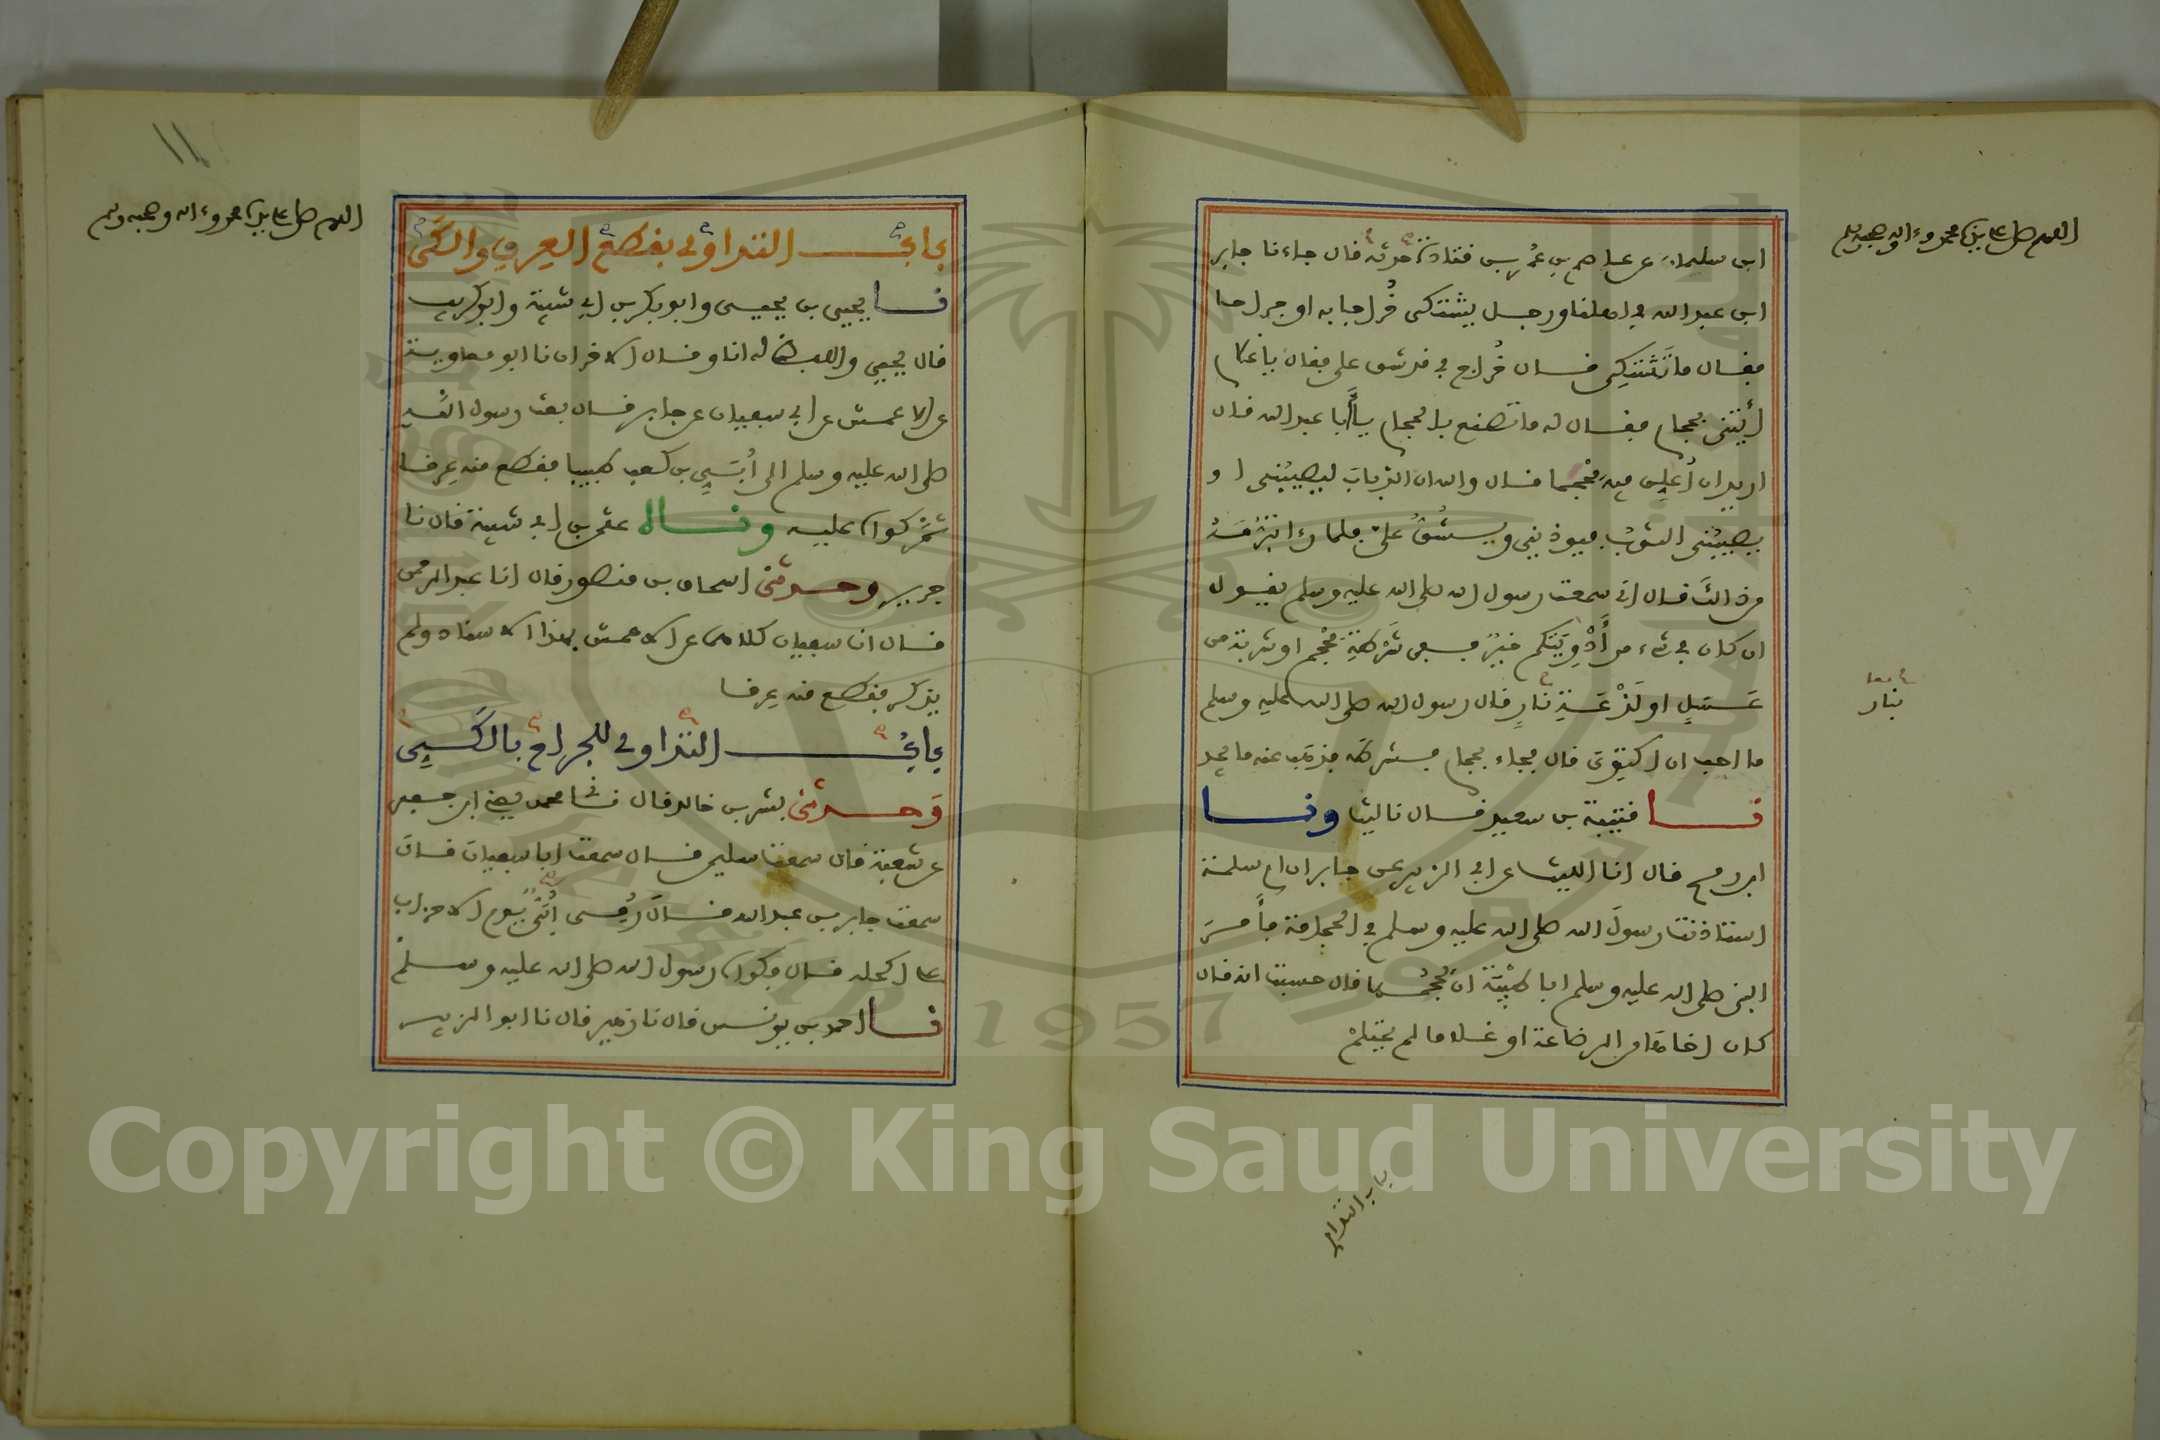 اللهم صل على سيدنا محمد وءاله وصحبه وسلم
ابن سليمان عن عاصم بن عمر بن قتادة حدثه قال جاءنا جابر
ابن عبد الله في اهلنا ورجل يشتكى خُراجا به او جراحا
فقال ما تَشتكِى قال خُراج بي قد شق علي فقال يا غلام
ائتني بحجام فقال له ما تصنع بالحجام يا أبا عبد الله قال
اريد ان أعلق فيه محجما قال والله ان الذباب ليصيبُني او
يصيبُني الثوبُ فيوذيني ويشُقُّ علي فلما رءا تبرُّمَهُ
من ذالك قال اني سمعت رسول الله صلى الله عليه وسلم يقول
ان كان في شيء من أَدْوِيَتكم خيرٌ ففي شَرْطةِ محْجم او شربة من
عَسَلٍ او لَذْعَةٍ نَارٍ قال رسول الله صلى الله عليه وسلم
بنار
ما احب ان اكتوِىَ قال فجاء بحجام فشرطه فذهب عنه ما يجد
نا قتيبة بن سعيد قال نا ليث ونا
ابن رمح قال انا الليث عن ابي الزبير عن جابر ان ام سلمة
استاذنت رسولَ الله صلى الله عليه وسلم في الحجامة فأمرَ
النبي صلى الله عليه وسلم ابا طَيْبَةَ ان يحجُمها قال حسبت انه قال
كان اخاها من الرضاعة او غلاما لم يحتلمْ
باب التداوي
١١
اللهم صل على سيدنا محمد وءاله وصحبه وسلم
بابُ التداوي بقطع العرق والكَيّ
نا يحيى بن يحيى وابو بكر بن ابي شيبة وابو كريب
قال يحيى واللفظ له انا وقال الاخران نا ابو معاوية
عن الاعمش عن ابي سفيان عن جابر قال بعث رسول الله
صلى الله عليه وسلم الى أُبَيِّ بن كعب طبيبا فقطع منه عِرقا
ثم كواه عليه ونا عثمن بن ابي شيبة قال نا
جرير وحدثني اسحاق بن منصور قال انا عبد الرحمن
قال انا سفيان كلاهما عن الاعمش بهذا الاسناد ولم
يذكر فقطع منه عِرقا
بابُ التداوي للجراح بالكَيِّ
وَحدثني بشر بن خالد قال نا محمد يعني ابن جعفر
عن شعبة قال سمعت سليمن قال سمعت ابا سفيان قال
سمعت جابر بن عبد الله قال رُمِى أُبَيٌّ يَوم الاحزاب
على اكحله قال فكواه رسول الله صلى الله عليه وسلم
نا احمد بن يونس قال نا زهير قال نا ابو الزبير
1957
Copyright © King Saud University